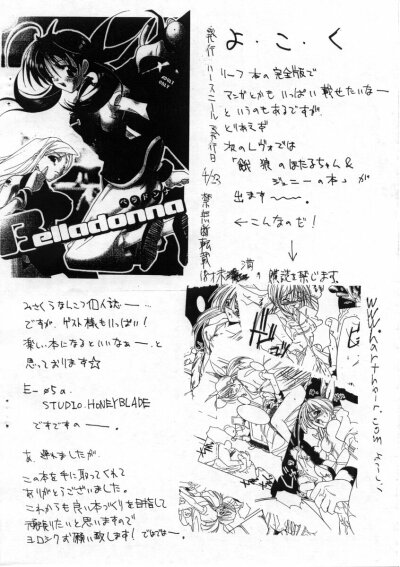 よ・こ・く
リーフ本の完全版で
マンガとかもいっぱい載せたいなー
というのもあるですが
とりあえず
次のレヴォでは
「餓狼のほたるちゃん&
ジェニーの本」が
出ますーー。
←こんなのだ!
↓
発行日
4/23
禁無断転載
の購読を禁じます
ADULT ONLY
ベラドンナ
Belladonna
みさくらなんこつ個人誌ー…
ですが、ゲスト様もいっぱい!
楽しい本になるといいなぁー。と
思っております☆
E-05a
STUDIO.HONEYBLADE
ですですのー。
あ、選んましたが、
この本を手に取ってくれて
ありがとうございました。
これからも良い本づくりを目指して
頑張りたいと思いますので
ヨロシクお願い致します!ではではー。